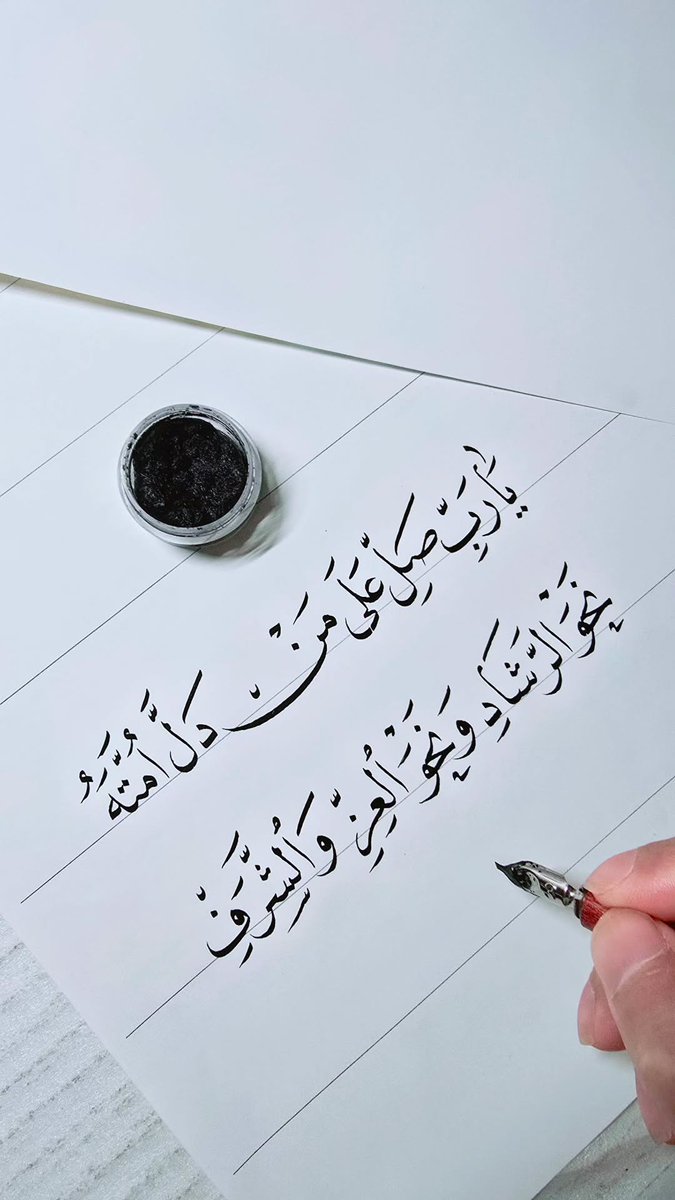 يَا رَبِّ صَلِّ عَلَى مَنْ دَلَّ أُمَّتَهُ
نَحْوَ الرَّشَادِ وَنَحْوَ الْعِزِّ وَالشَّرَفِ